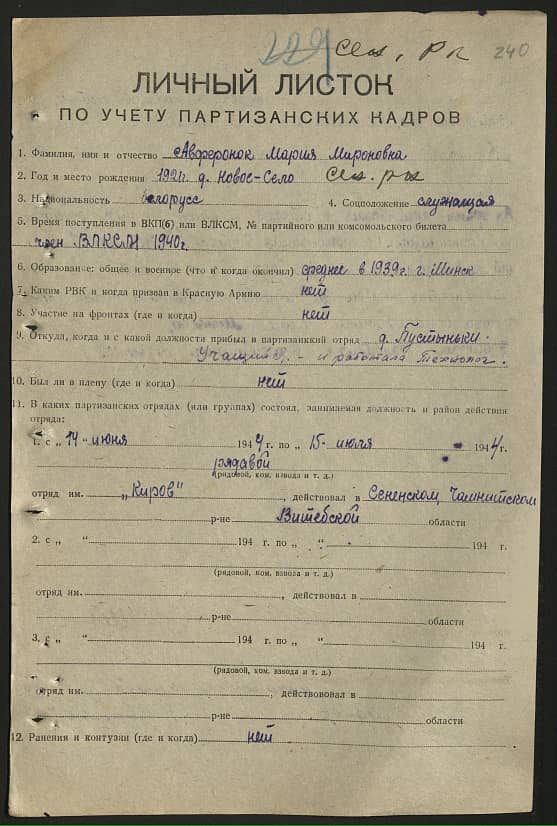 229 Сен, р-н 240
ЛИЧНЫЙ ЛИСТОК
ПО УЧЕТУ ПАРТИЗАНСКИХ КАДРОВ
1. Фамилия, имя и отчество Авферонок Мария Мироновка
2. Год и место рождения 1921г. д. Новое-Село Сен. р-н
3. Национальность белорусс 4. Соцположение служащая
5. Время поступления в ВКП(б) или ВЛКСМ, № партийного или комсомольского билета
член ВЛКСМ 1940г.
6. Образование: общее и военное (что и когда окончил) среднее в 1939г. г. Минск
7. Каким РВК и когда призван в Красную Армию нет
8. Участие на фронтах (где и когда) нет
9. Откуда, когда и с какой должности прибыл в партизанкий отряд д. Пустыньки.
и работала Технолог.
10. Был ли в плену (где и когда) нет
11. В каких партизанских отрядах (или группах) состоял, занимаемая должность и район действия
отряда:
1. с „14" июня 1944 г. по „15" июля 1944 г.
рядавой
(рядовой, ком. взвода и т. д.)
отряд им. „Киров", действовал в Сененском,
р-не Витебской области
2. с „ " 194 г. по „ " 194 г.
(рядовой, ком. взвода и т. д.)
отряд им. , действовал в
р-не области
3. с „ " 194 г. по „ " 194 г.
(рядовой, ком. взвода и т. д.)
отряд им. , действововал в
р-не области
12. Ранения и контузии (где и когда) нет